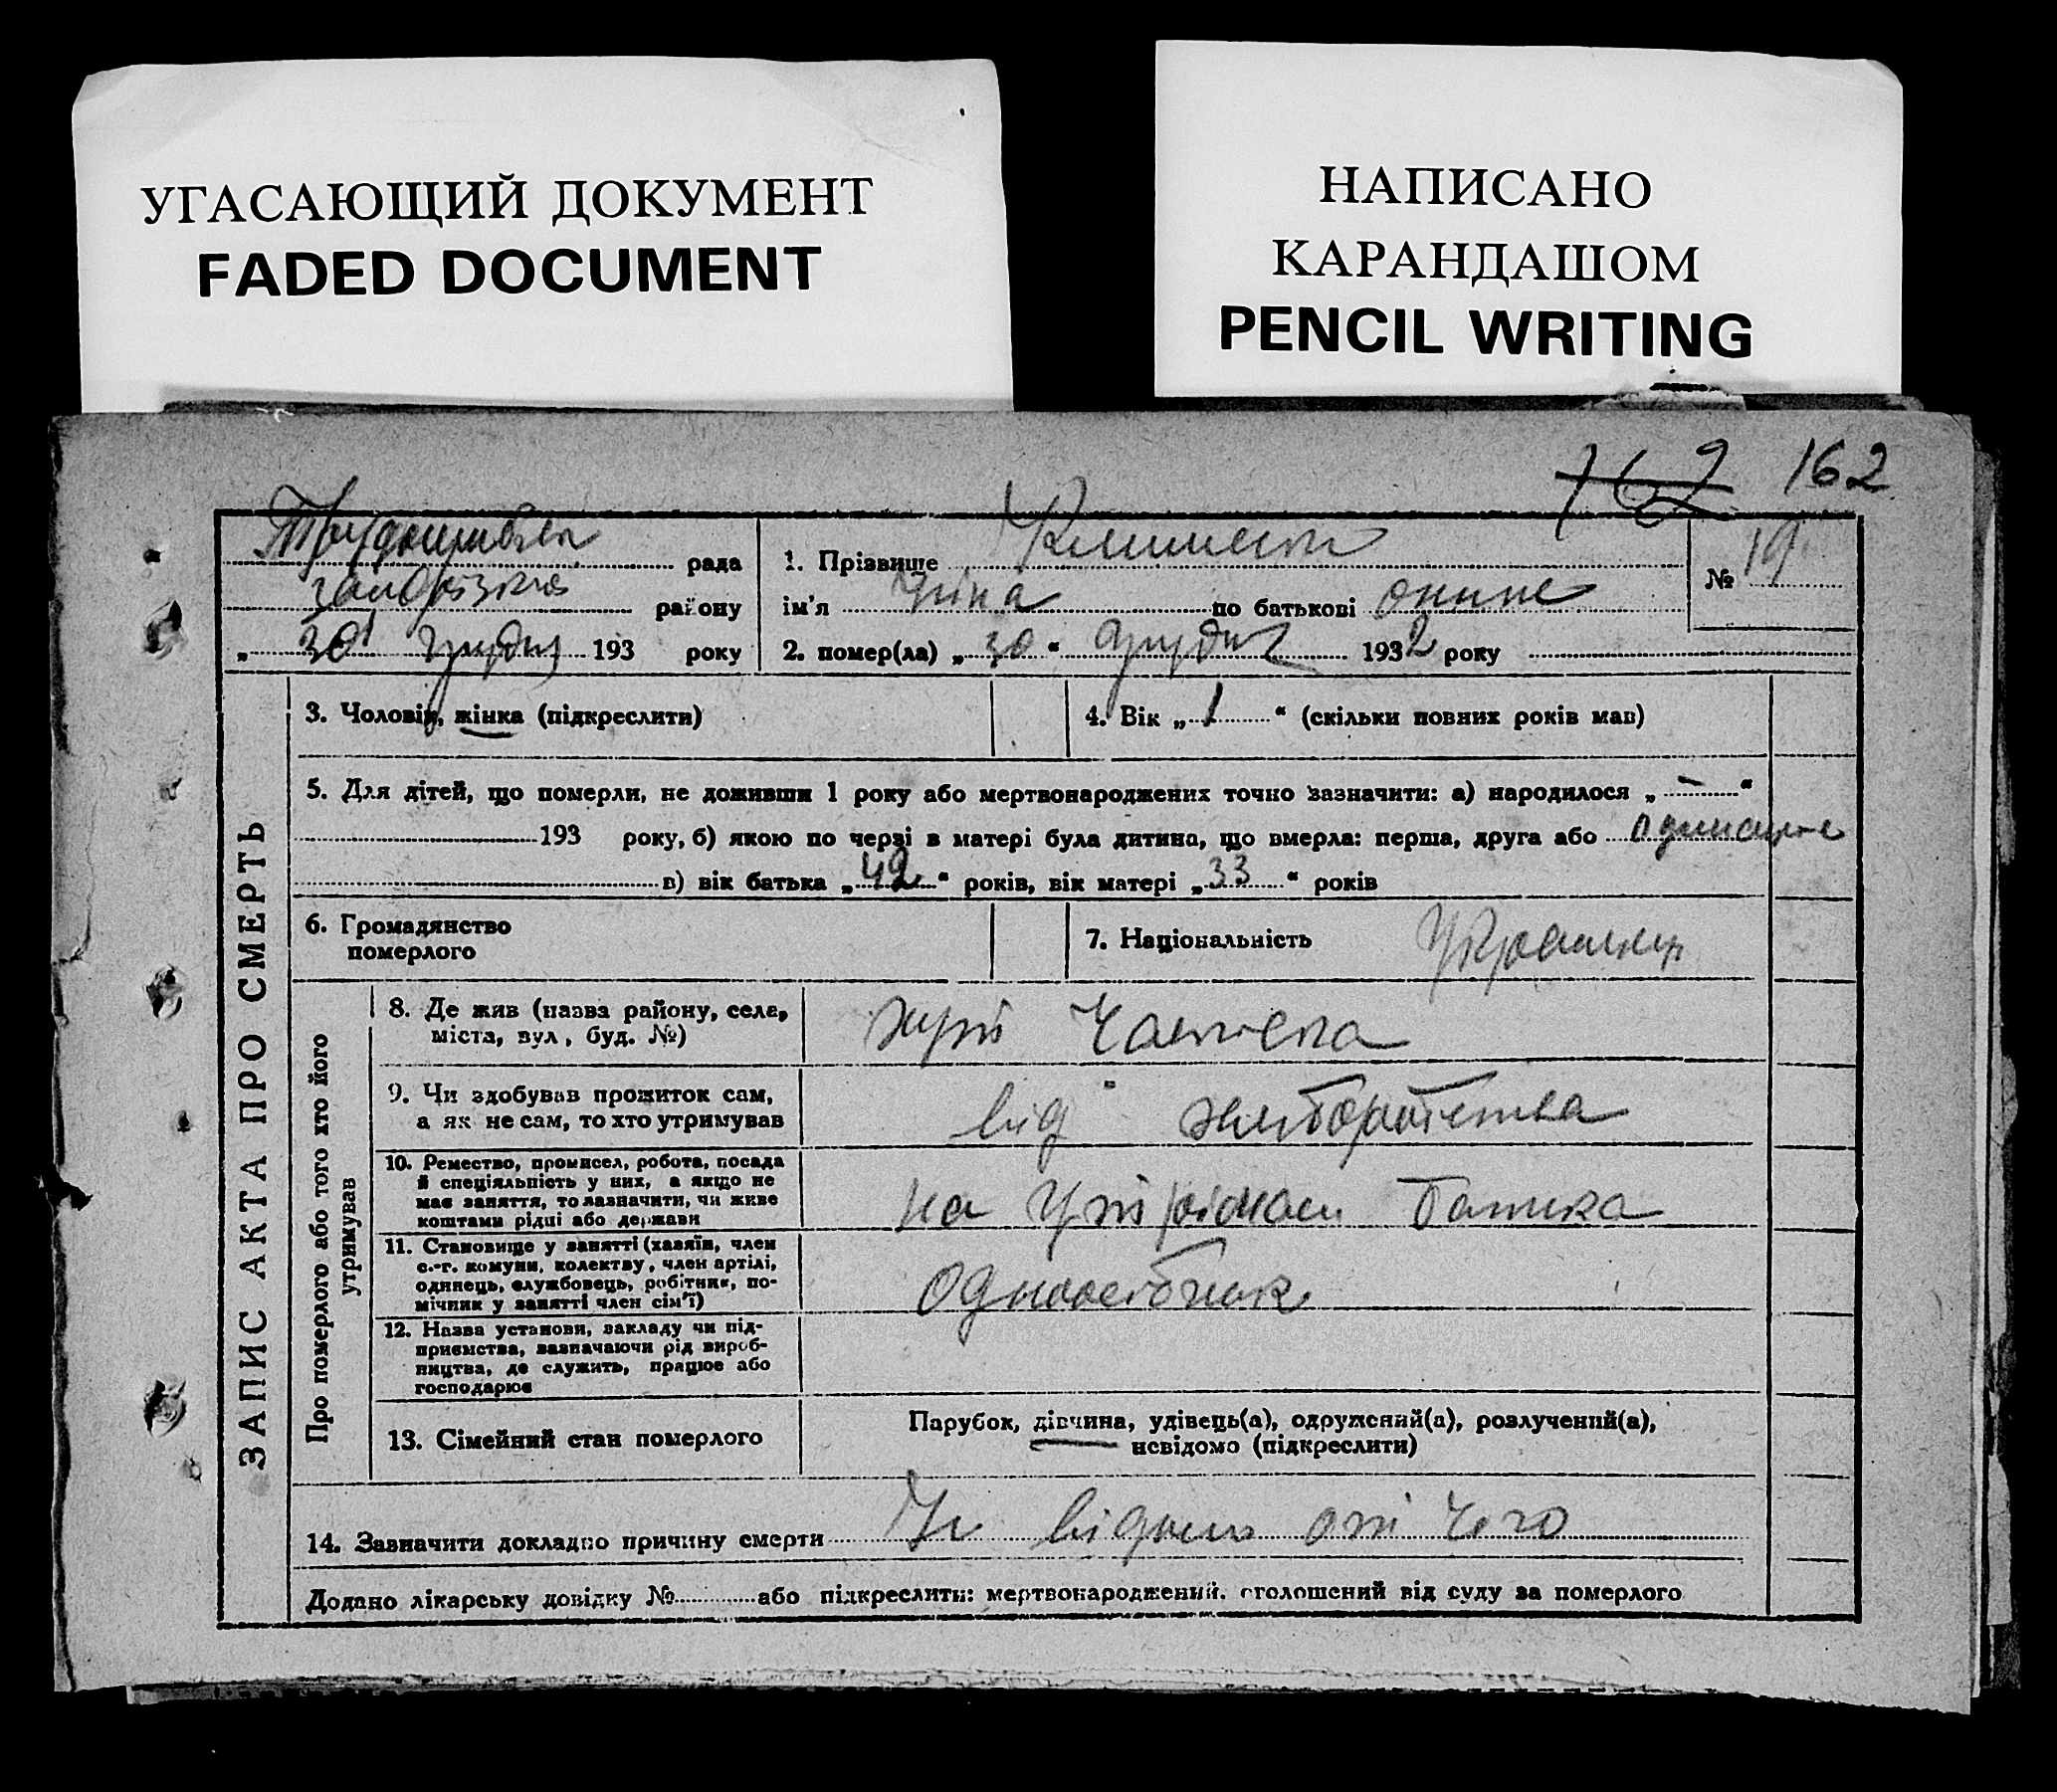 УГАСАЮЩИЙ ДОКУМЕНТ
FADED DOCUMENT
НАПИСАНО
КАРАНДАШОМ
PENCIL WRITING
162 162
рада
району
„ 30 грудня 193 року
1. Прізвище
ім'я по батькові
2. помер(ла) „ 30 “ грудня 1932 року
№ 19
ЗАПИС АКТА ПРО СМЕРТЬ
3. Чоловік, жінка (підкреслити)
4. Вік „ 1 “ (скільки повних років мав)
5. Для дітей, що померли, не доживши 1 року або мертвонароджених точно зазначити: а) народилося „ – “
193 року, б) якою по черзі в матері була дитина, що вмерла: перша, друга або
в) вік батька „ 42 “ років, вік матері „ 33 “ років
6. Громадянство
померлого
7. Національність
Про померлого або того хто його
утримував
8. Де жив (назва району, села,
міста, вул, буд. №)
9. Чи здобував прожиток сам,
а як не сам, то хто утримував
від
10. Ремество, промисел, робота, посада
й спеціяльність у них, а якщо не
має заняття, то зазначити, чи живе
коштами рідні або держави
на батька
11. Становище у занятті (хазяїн, член
с.-г. комуни, колективу, член артілі,
одинець, службовець, робітник, по-
мічник у занятті член сім'ї)
12. Назва установи, закладу чи під-
приємства, зазначаючи рід вироб-
ництва, де служить, працює або
господарює
13. Сімейний стан померлого
Парубок, дівчина, удівець(а), одружений(а), розлучений(а),
невідомо (підкреслити)
14. Зазначити докладно причину смерти Не чого
Додано лікарську довідку № або підкреслити: мертвонароджений. оголошений від суду за померлого